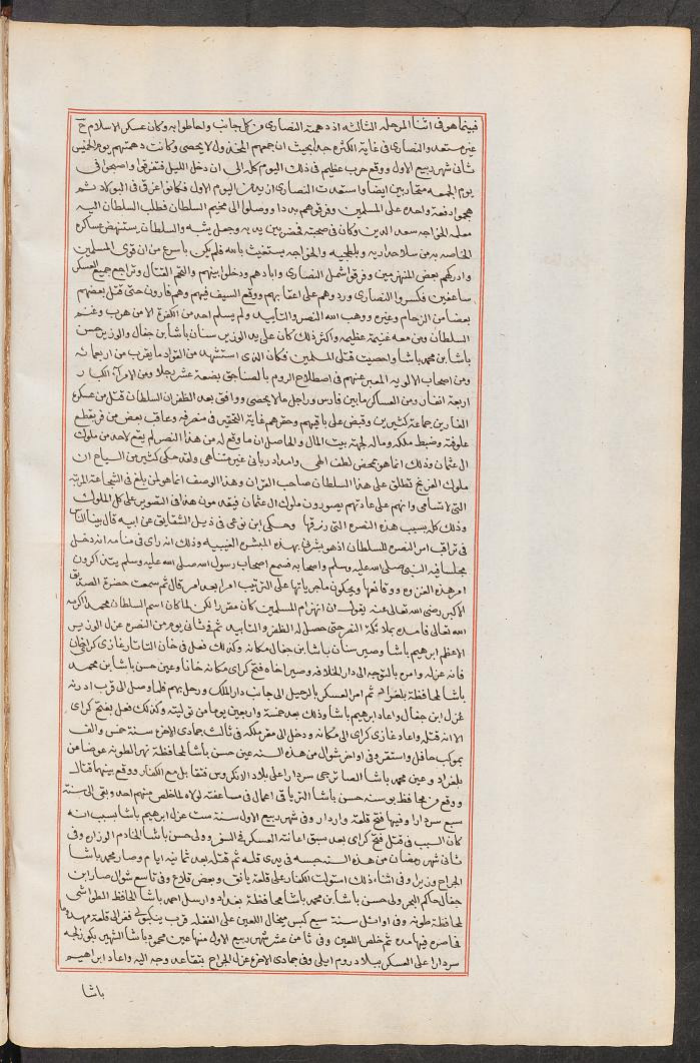 فبينما هو فى اثنا المرحله الثالثه اذ دهمته النصارى من كل جانب واحاطوا به وكان عسكر الاسلام ح
غير مستعد والنصارى فى غاية الكثره جدا بحيث ان جمعهم الحزول لا يحصى وكانت دهمتهم يوم الخميس
ثانى شهر ربيع الاول ووقع حرب عظيم فى ذلك اليوم كله الى ان دخل الليل فتفرقوا واصبحوا فى
يوم الجمعه متحاربين ايضا واستعدت النصارى ازيد من اليوم الاول فكانوا غرقى فى البولاد ثم
هجموا دفعة واحده على المسلمين وفرقوهم بددا ووصلوا الى مخيم السلطان فطلب السلطان اليه
معلمه الخواجه سعد الدين وكان فى صحبته فحضر بين يديه وجعل يثبته والسلطان يستنهض عساكره
الخاصه به من سلاحداريه وبلطجيه والخواجه يستغيث بالله فلم يكن باسرع من ان قوى المسلمين
وادركهم بعض المنهزمين وفرقوا شمل النصارى وابادهم ودخلوا بينهم والتحم القتال وتراجع جميع العسكر
ساعفين فكسروا النصارى وردوهم على اعقابهم ووقع السيف فيهم وهم فارون حتى قتل بعضهم
بعضا من الزحام وغيره ووهب الله النصر والتاييد ولم يسلم احد من الكفرة الا من هرب وغنم
السلطان ومن معه غنيمة عظيمه واكثر ذلك كان على يد الوزير سنان باشا بن جغال والوزير حسن
باشا بن محمد باشا واحصيت قتلى المسلمين فكان الذى استشهد من القواد ما يقرب من اربعمائه
ومن اصحاب الالويه المعبر عنهم فى اصطلاح الروم بالصناجق بضعة عشر رجلا ومن الامرآء الكبار
اربعة انفار ومن العسكر ما بين فارس وراجل ما لا يحصى ووافق بعد الظفر ان السلطان قتل من عسكره
الفارين جماعة كثيرين وقبض على باقيهم وحقرهم غاية التحقير فى منعرفه وعاقب بعض من فر بقطع
علوفته وضبط ملكه وماله لجهة بيت المال والحاصل ان ما وقع له من هذا النصر لم يقع لاحد من ملوك
ال عثمان وذلك انما هو بمحض لطف الهى وامداد ربانى غير متناهى ولقد حكى كثير من السياح ان
ملوك الفرنج تطلق على هذا السلطان صاحب القران وهذا الوصف انما هو لمن بلغ فى الشجاعة المرتبه
التى لا تسامى وانهم على عادتهم يصورون ملوك ال عثمان فيقدمون هذا فى التصوير على كل الملوك
وذلك كله بسبب هذه النصره التى رزقها وحكى ابن نوعى فى ذيل الشقايق عن ابيه قال بينا الناس
فى تراقب امر النصره للسلطان اذ هو بشرنى بهذه المبشره الغيبيه وذلك انه راى فى منامه انه دخل
مجلسا فيه النبى صلى الله عليه وسلم واصحابه فسمع اصحاب رسول الله صلى الله عليه وسلم يتذاكرون
امر هذه الغزوه ووقائعها ويحكون ماجرياتها على الترتيب امرا بعد امر قال ثم سمعت حضرة الصديق
الاكبر رضى الله تعالى عنه يقول ان انهزام المسلمين كان مقررا لكن لما كان اسم السلطان محمد اكرمه
الله تعالى فامده بملائكة النصر حتى حصل له الظفر والتاييد ثم فى ثانى يوم من النصره عزل الوزير
الاعظم ابراهيم باشا وصير سنان باشا بن جغال مكانه وكذلك فعل فى خان التاتار غازى كراى خان
فانه عزله وامره بالتوجه الى دار الخلافه وصير اخاه فتح كراى مكانه خانا وعين حسن باشا بن محمد
باشا لمحافظة بلغراد ثم امر العسكر بالرحيل الى جانب دار الملك ورحل بهم فلما وصل الى قرب ادرنه
عزل ابن جغال واعاد ابراهيم باشا وذلك بعد خمسة واربعين يوما من توليته وكذلك فعل بفتح كراى
الا انه قتله واعاد غازى كراى الى مكانه ودخل الى مقر ملكه فى ثالث جمادى الاخره سنة خمس والف
بموكب حافل واستقر وفى اواخر شوال من هذه السنه عين حسن باشا لمحافظة نهر الطونه عوضا من
بلغراد وعين محمد باشا الصاترجى سردارا على بلاد الانكروس فتقابل مع الكفار ووقع بينهما قتال
ووقع من محافظ بوسنه حسن باشا الترياقى اعمال فى مساعفته لولاه لم تخلص منهم احد وبقى الى سنة
سبع سردارا وفيها فتح قلعة واردار وفى شهر ربيع الاول سنة ست عزل ابراهيم باشا بسبب انه
كان السبب فى قتل فتح كراى بعد سبق اعانته العسكر فى السفر وولى حسن باشا الخادم الوزاره وفى
ثانى شهر رمضان من هذه السنه حبسه فى يدى قله ثم قتله بعد ثمانية ايام وصار محمد باشا
الجراح وزيرا وفى اثناء ذلك استولت الكفار على قلعة يانق وبعض قلاع وفى تاسع شوال صار ابن
جغال حاكم البحر وولى حسن باشا بن محمد باشا محافظة بغداد وارسل احمد باشا الحافظ الطواشى
لمحافظة طونه وفى اوائل سنة سبع كبس ميخال اللعين على الغفله قرب ينكبولى ففر الى قلعة
فحاصره فيها مده ثم خلص اللعين وفى ثامن عشر شهر ربيع الاول منها عين محمود باشا الشهير بكوزلجه
سردارا على العسكر ببلاد روم ايلى وفى جمادى الاخره عزل الجراح بتقاعد وجه اليه واعاد ابراهيم
باشا